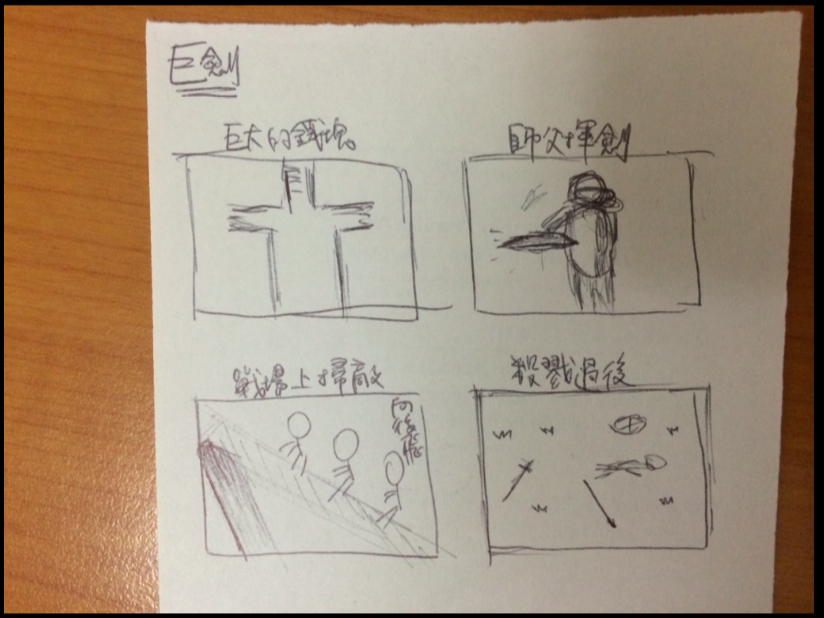 巨劍
巨大的鐵塊。
師父揮劍
戰場上掃敵
向後飛
殺戮過後